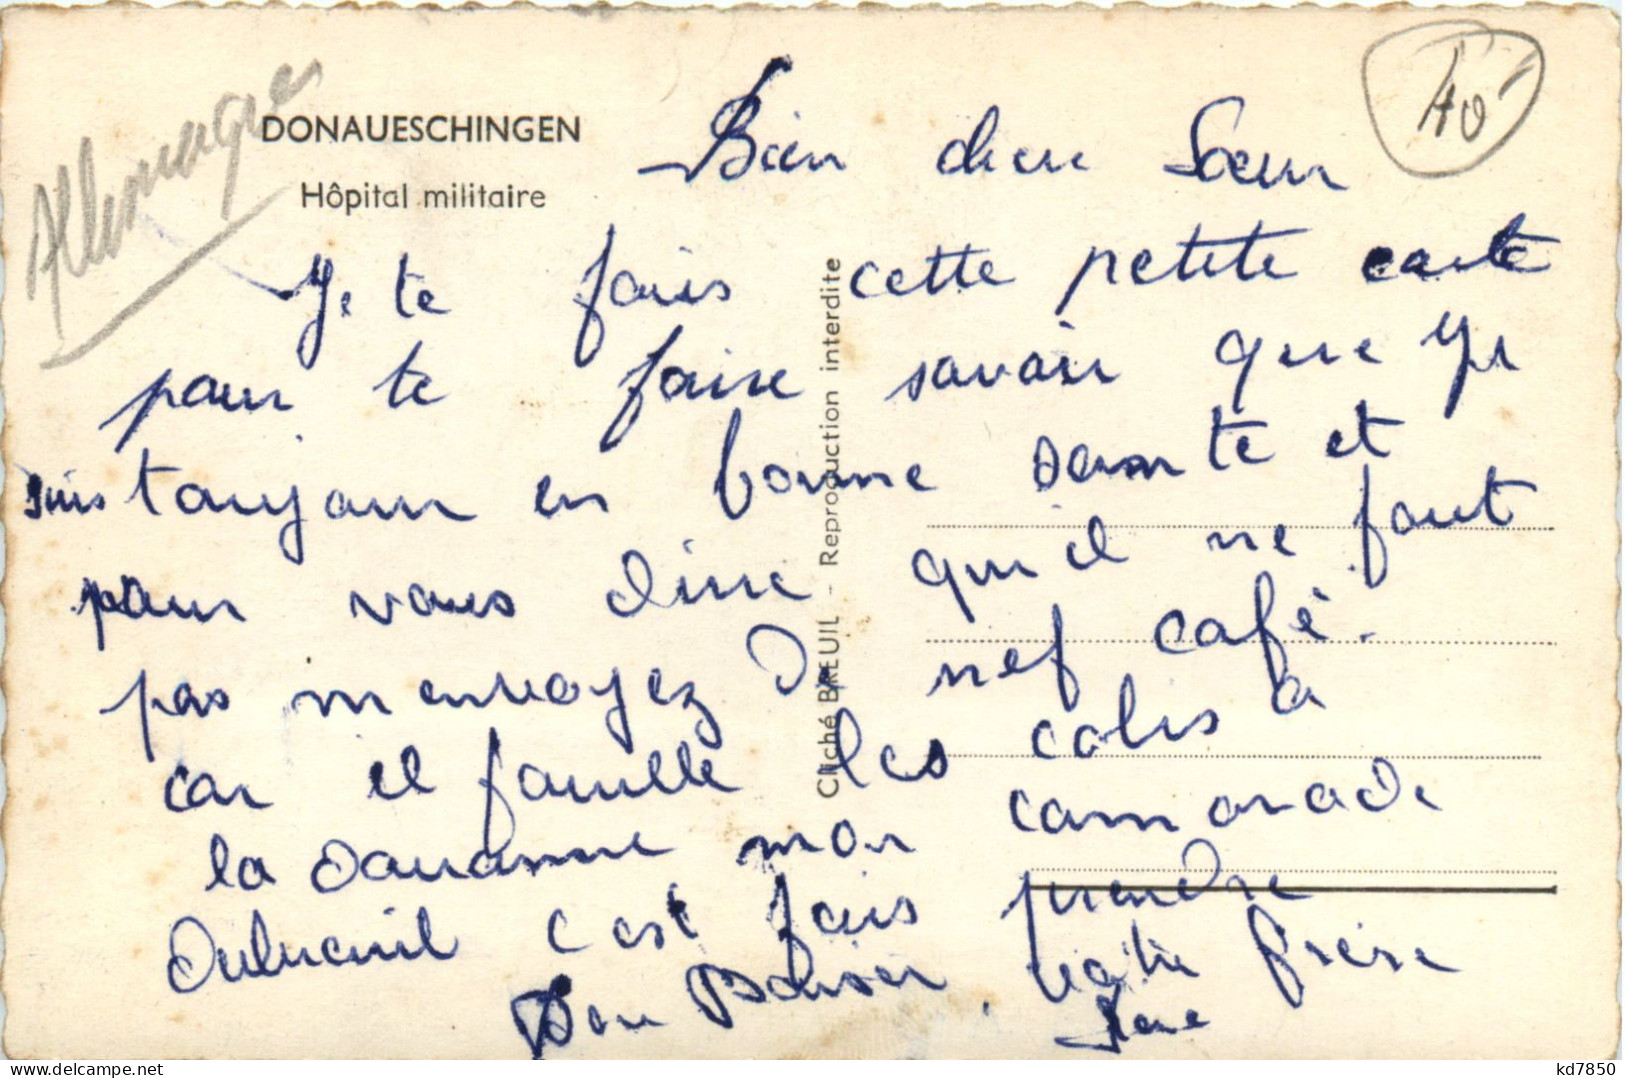 Allemagne
40
DONAUESCHINGEN
Hôpital militaire
Bien cher Sœur
Je te fais cette petite carte
pour te faire savoir que Je
suis toujour en bonne sante et
pour vous dire qu'il ne faut
pas m envoyez De nef café.
car il fouille les colis a
la douanne mon camarade
c est fais prendre
Bon Baiser. Votre frère
René
Cliché BREUIL - Reproduction interdite
kd7850